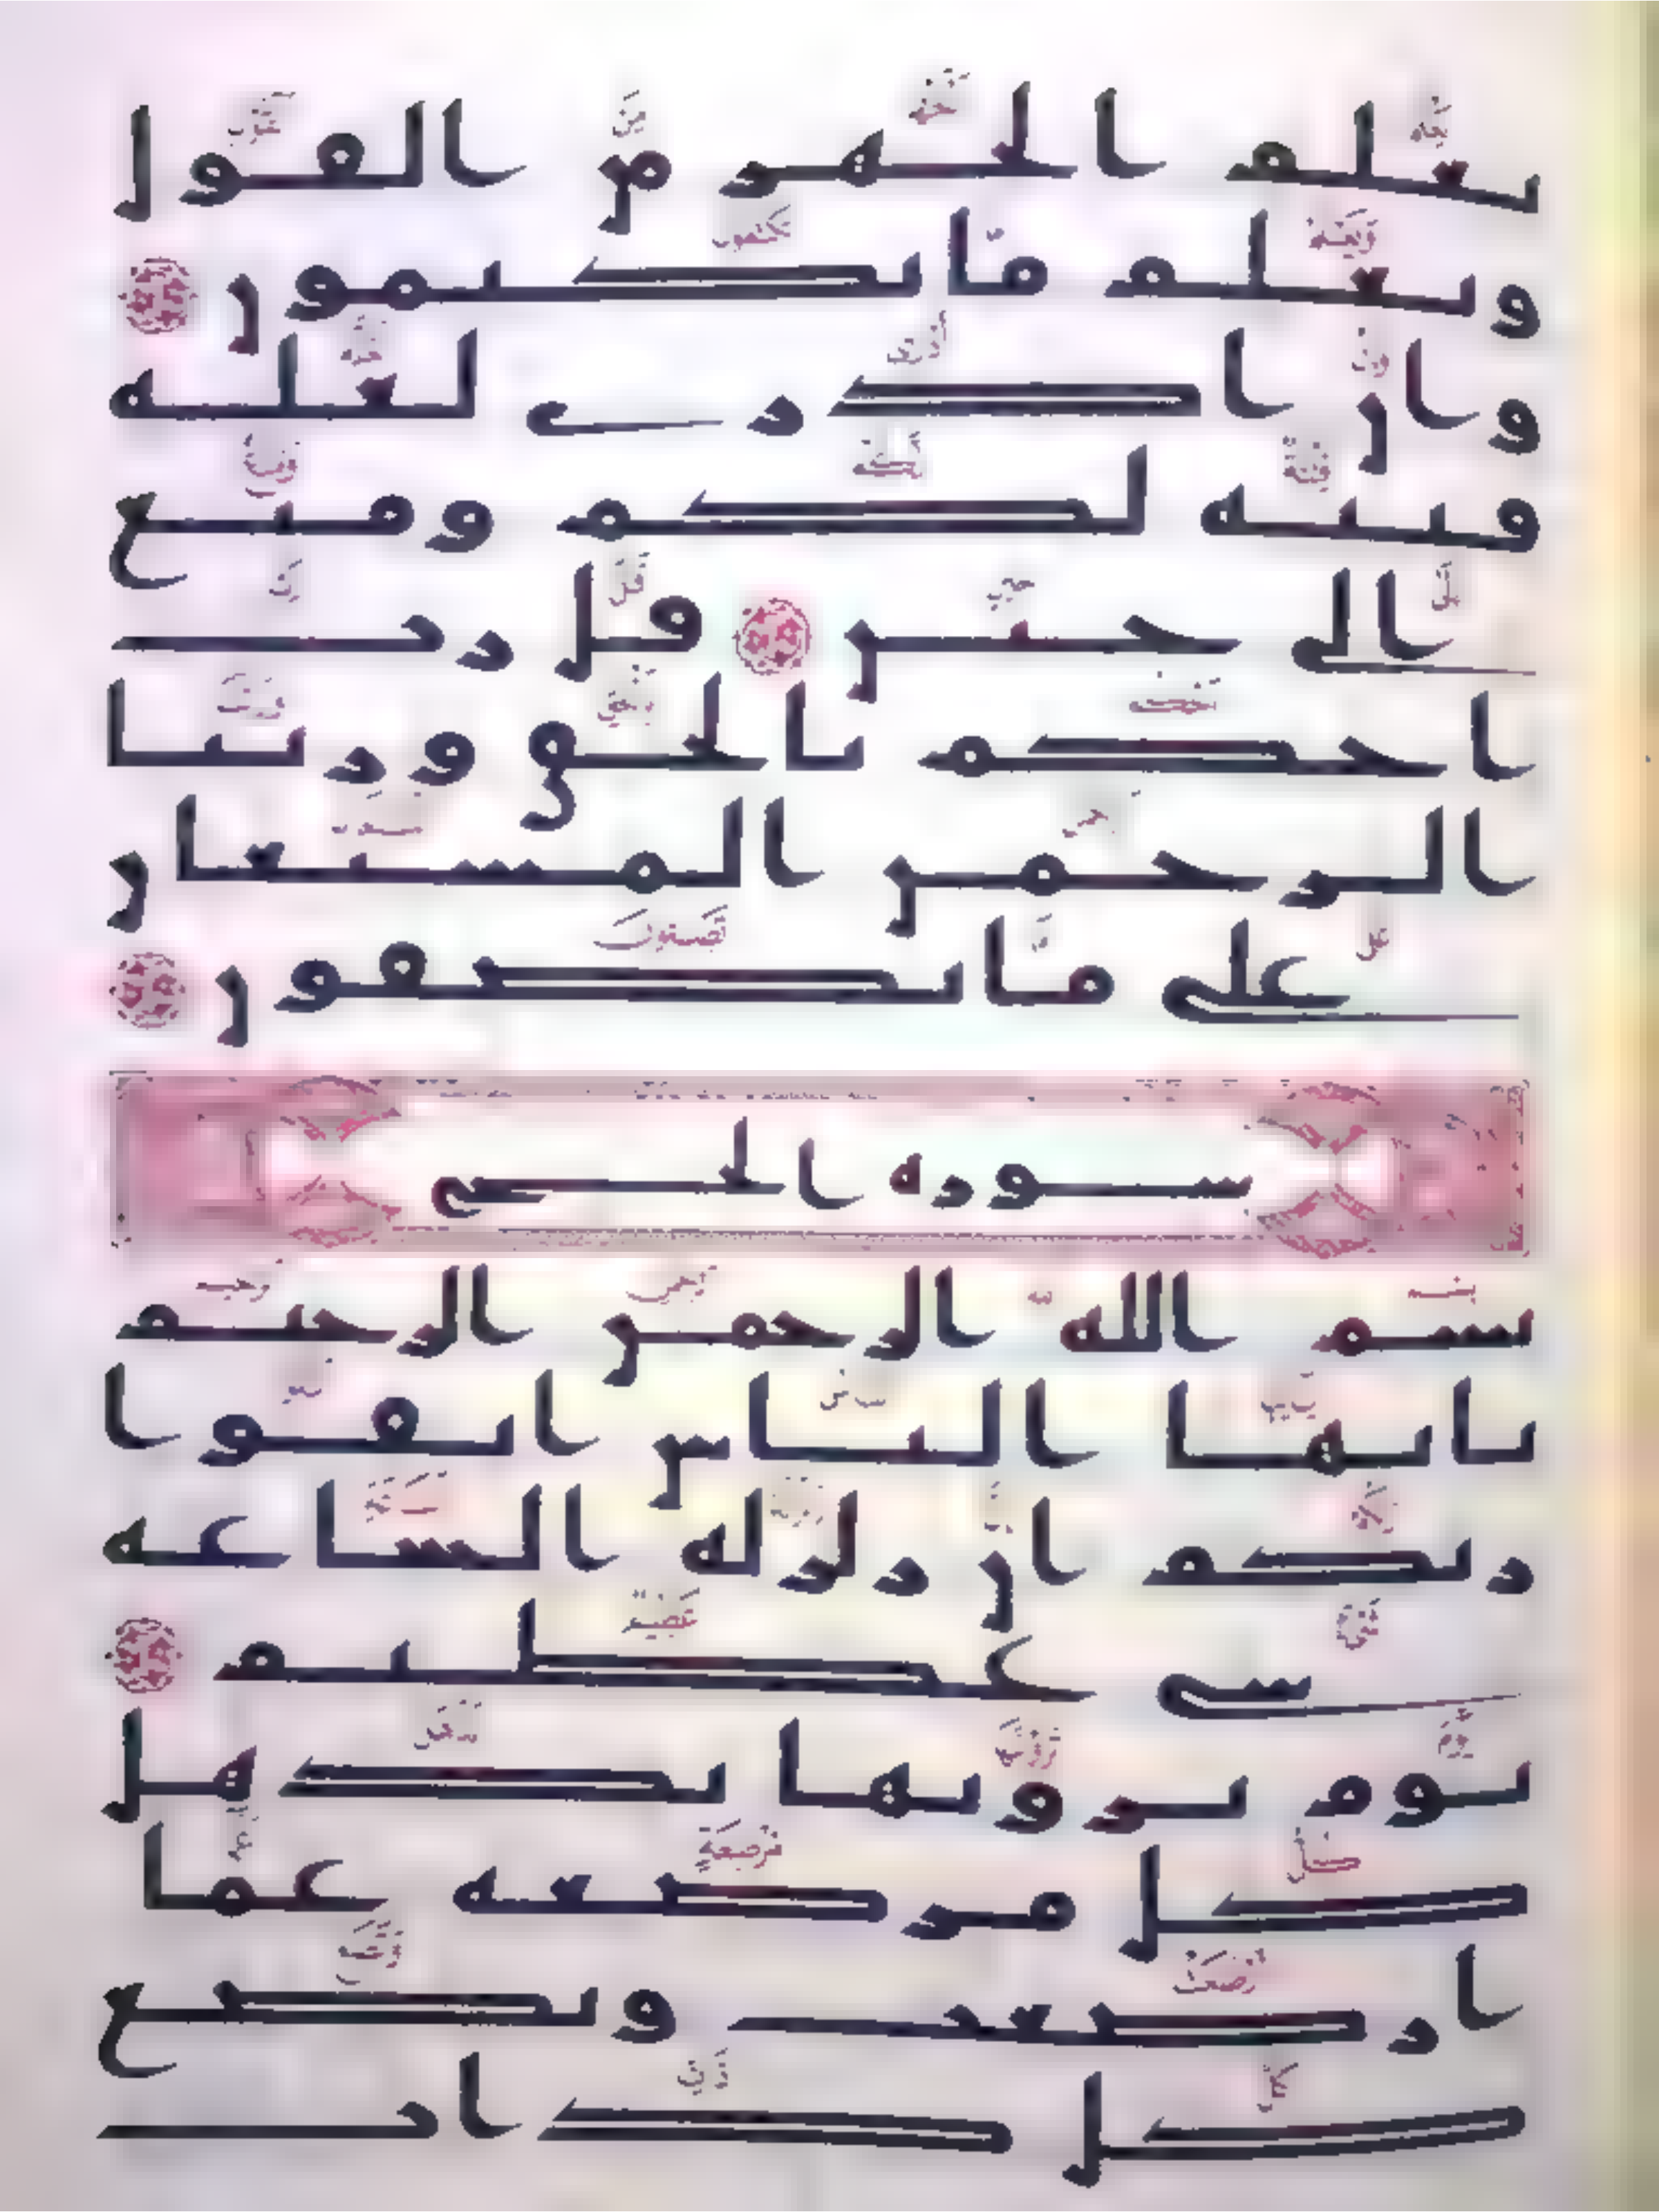 يعلم الجهر من القول
ويعلم ما تكتمون
وان ادرى لعله
فتنه لكم ومتع
الى حين قل رب
احكم بالحق وربنا
الرحمن المستعان
على ما تصفون
سوره الحج
بسم الله الرحمن الرحيم
يايها الناس اتقوا
ربكم ان زلزله الساعه
شى عظيم
يوم ترونها تذهل
كل مرضعه عما
ارضعت وتضع
كل ذات